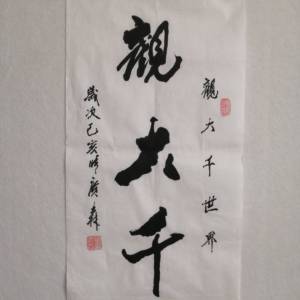 觀大千世界
觀大千
歲次己亥時廣森